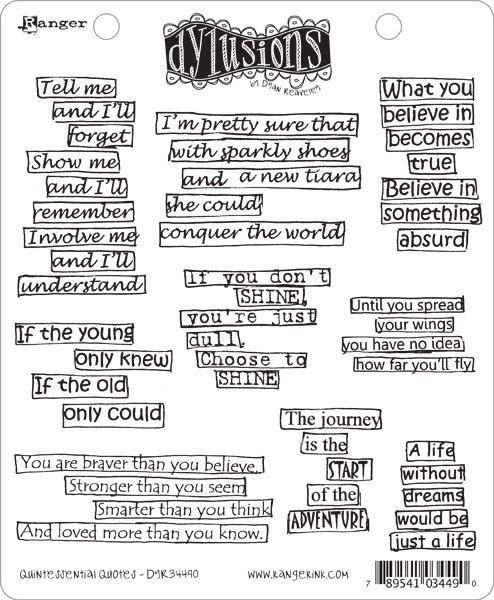 Ranger
dylusions
by Dyan Reaveley
Tell me
and I'll
forget
Show me
and I'll
remember
Involve me
and I'll
understand
I'm pretty sure that
with sparkly shoes
and a new tiara
she could
conquer the world
What you
believe in
becomes
true
Believe in
something
absurd
If you don't
SHINE,
you're just
dull.
Choose to
SHINE
Until you spread
your wings
you have no idea
how far you'll fly
If the young
only knew
If the old
only could
The journey
is the
START
of the
ADVENTURE
You are braver than you believe,
Stronger than you seem
Smarter than you think
And loved more than you know.
A life
without
dreams
would be
just a life
Quintessential Quotes - DYR34490
www.rangerink.com
7 89541 03449 0